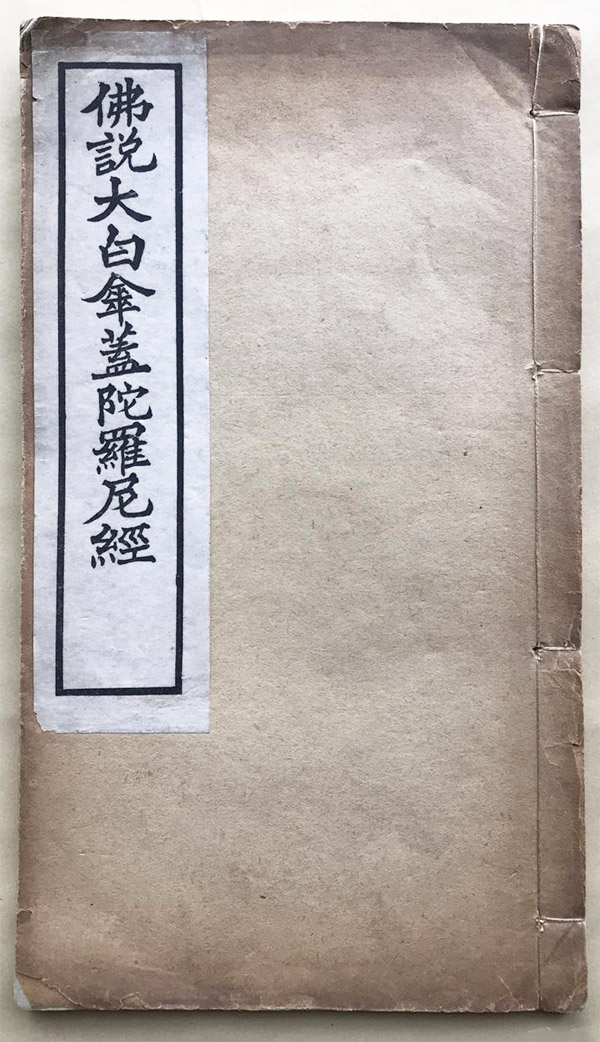 佛説大白傘蓋陀羅尼經